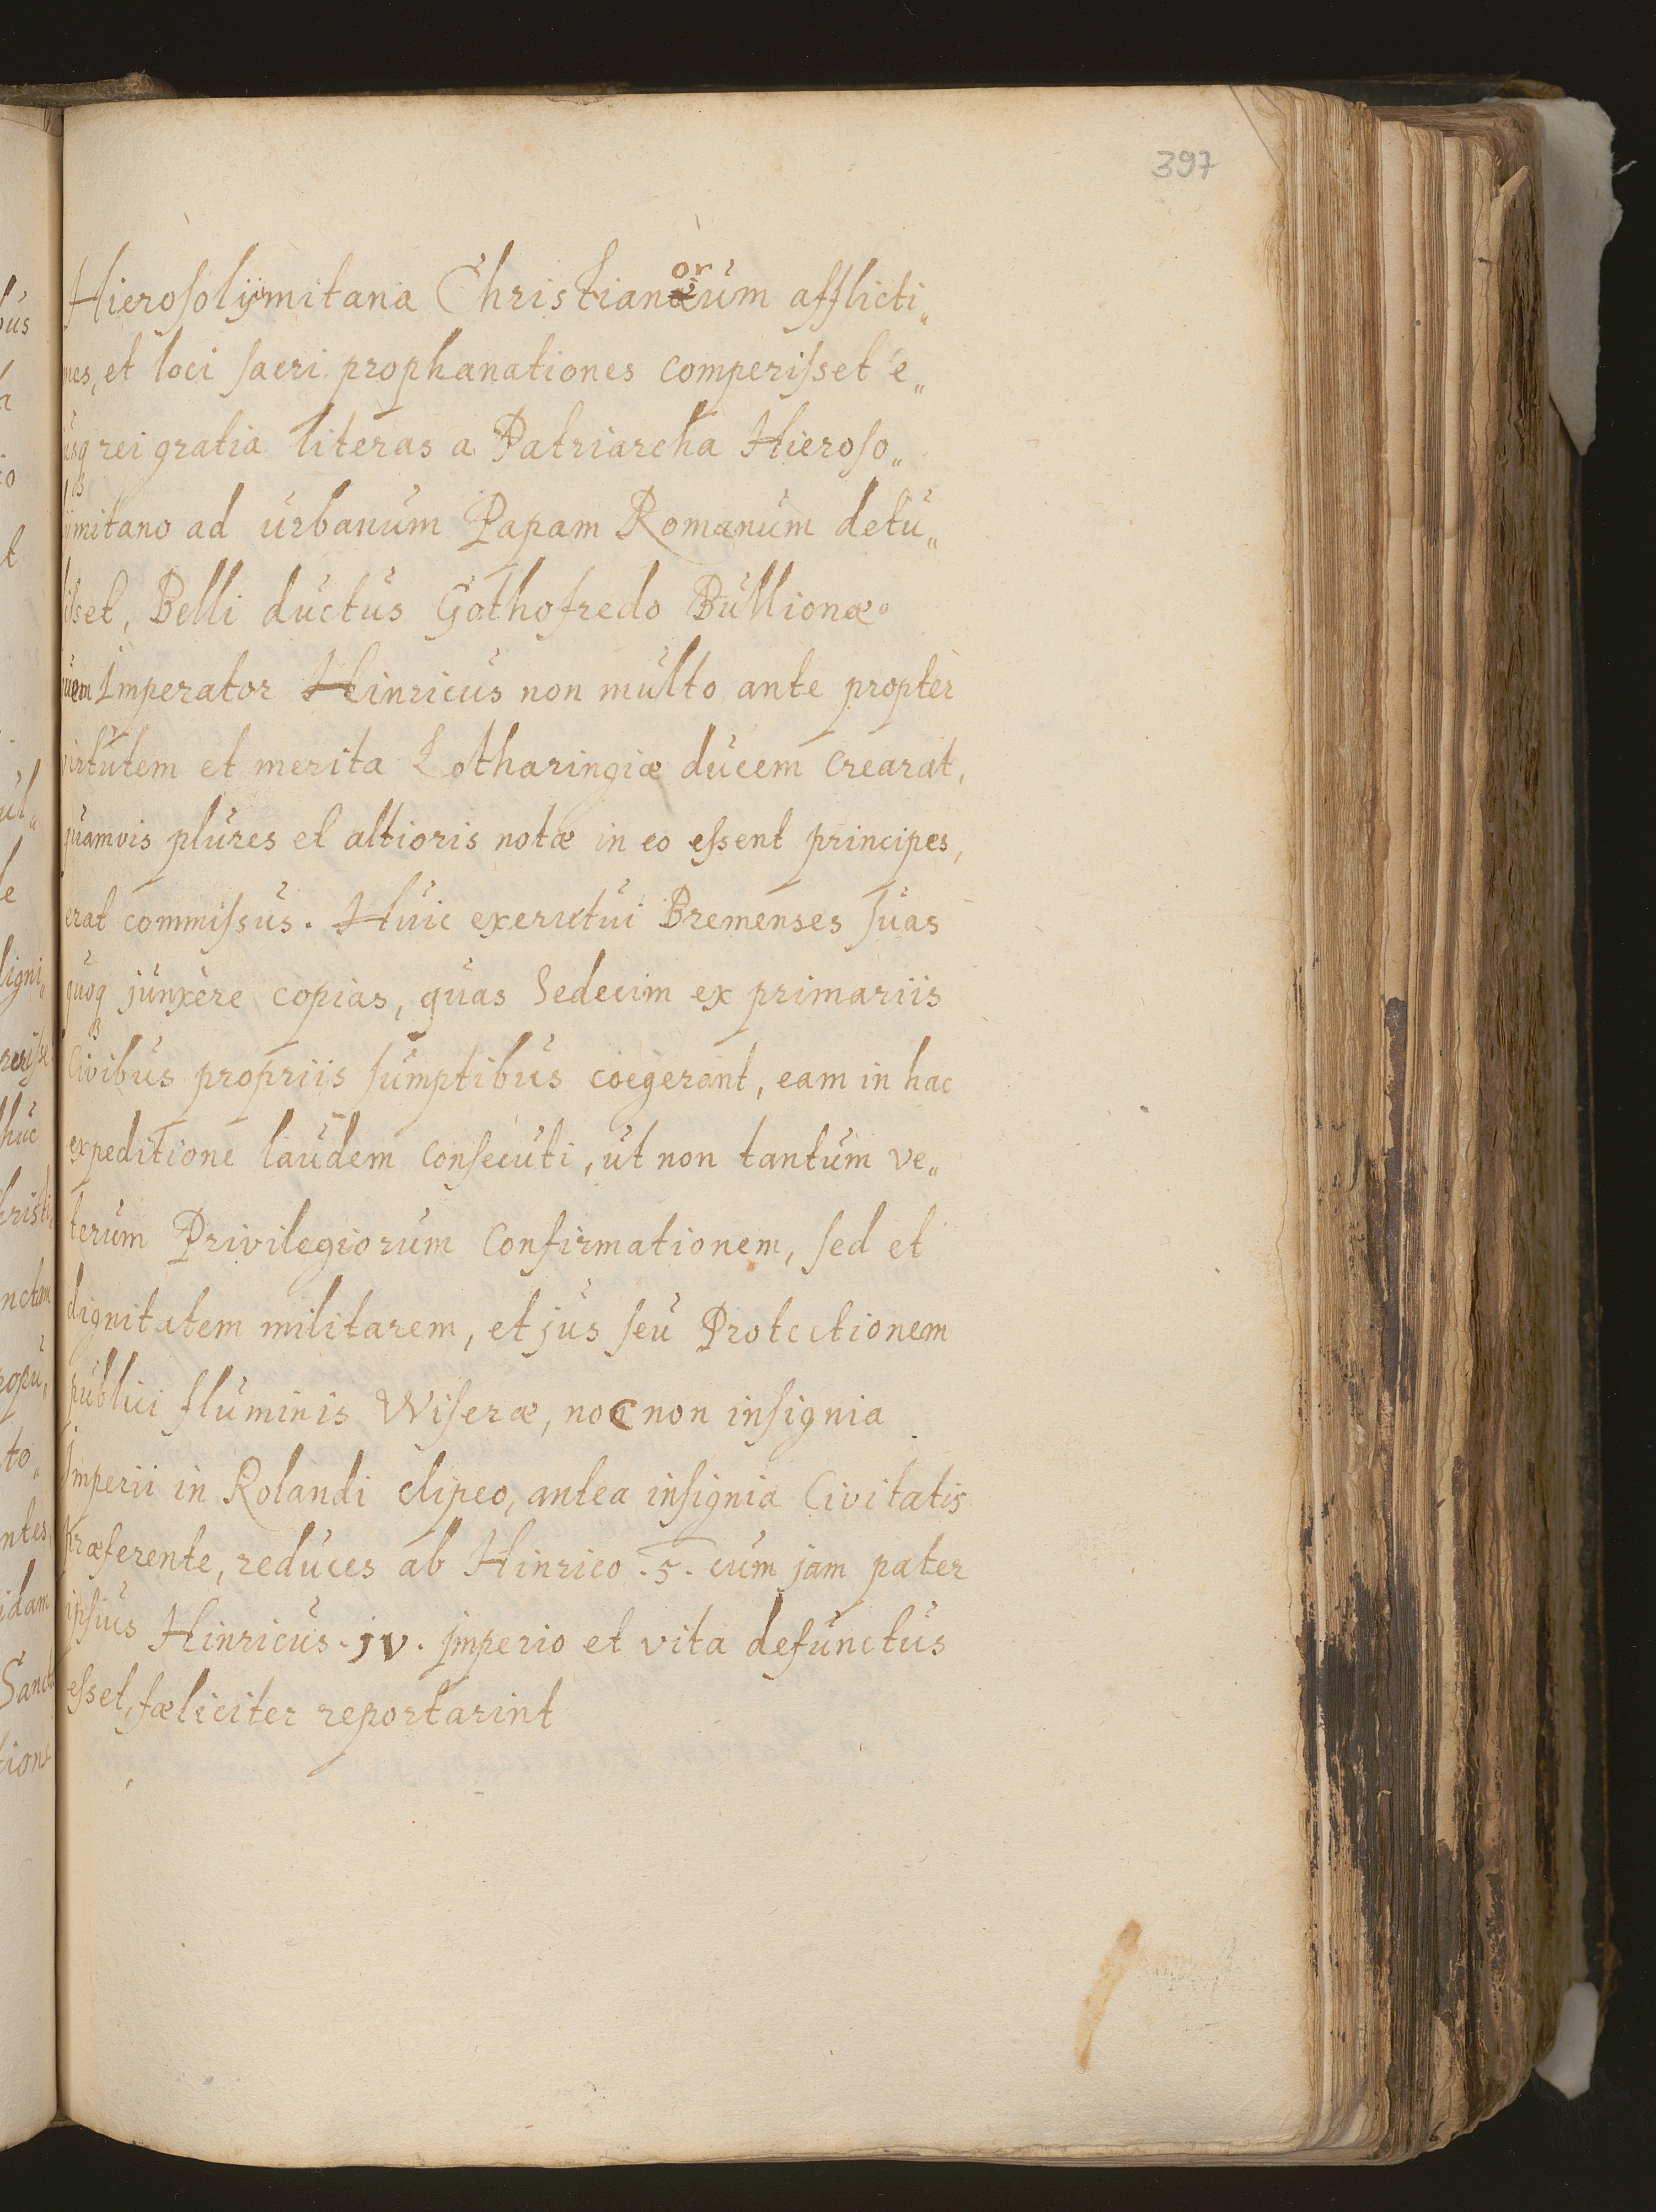 397
Hierosolÿmitana Christianorum afflicti„
nes, et loci sacri prophanationes comperisset e„
usq rei gratia literas a Patriarcha Hieroso„
lÿmitano ad urbanum Papam Romanum detu„
lisset, Belli ductus Gothofredo Bullionæo
quem Imperator Hinricus non multo ante propter
virtutem et merita Lotharingiæ ducem crearat,
quamvis plures et altioris notæ in eo essent principes,
erat commissus. Huic exercitui Bremenses suas
quoq junxere copias, quas Sedecim ex primariis
Civibus propriis sumptibus coegerant, eam in hac
expeditione laudem consecuti, ut non tantum ve„
terum Privilegiorum Confirmationem, sed et
dignitatem militarem, et jus seu Protectionem
publici fluminis Wiseræ, nec non insignia
Imperii in Rolandi clipeo, antea insignia Civitatis
præferente, reduces ab Hinrico .5. cum jam pater
ipsius Hinricus. jv. jmperio et vita defunctus
esset, fæliciter reportarint